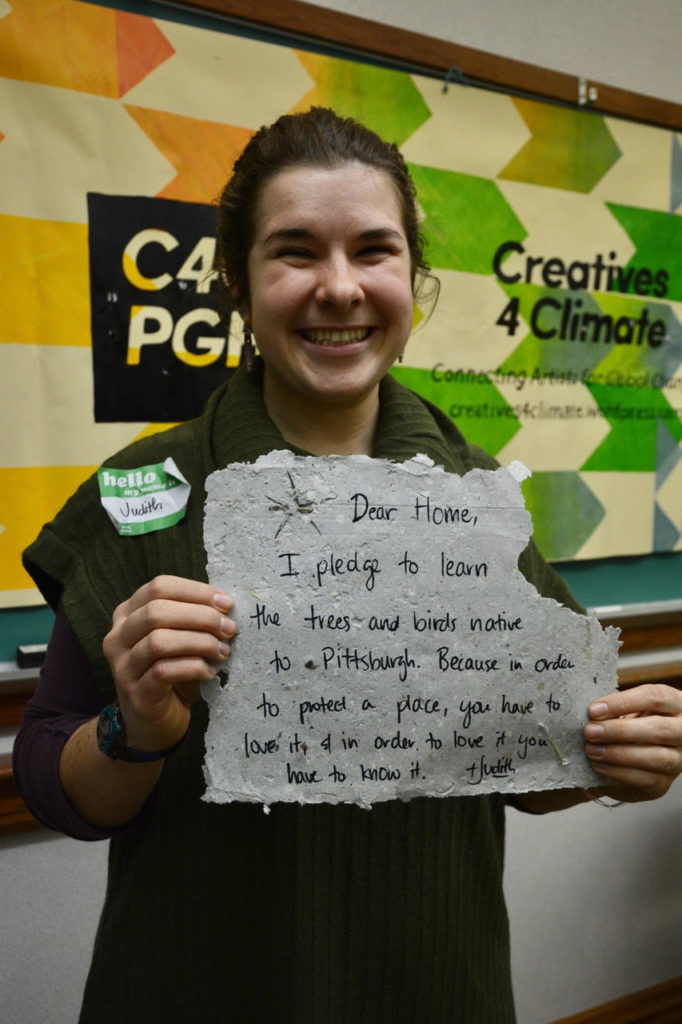 C4
PGH
Creatives
4 Climate
Connecting Artists for Global Chan
creatives4climate.wordpress.com
hello
my name is
Judith
Dear Home,
I pledge to learn
the trees and birds native
to Pittsburgh. Because in order
to protect a place, you have to
love it, & in order to love it you
have to know it. +Judith